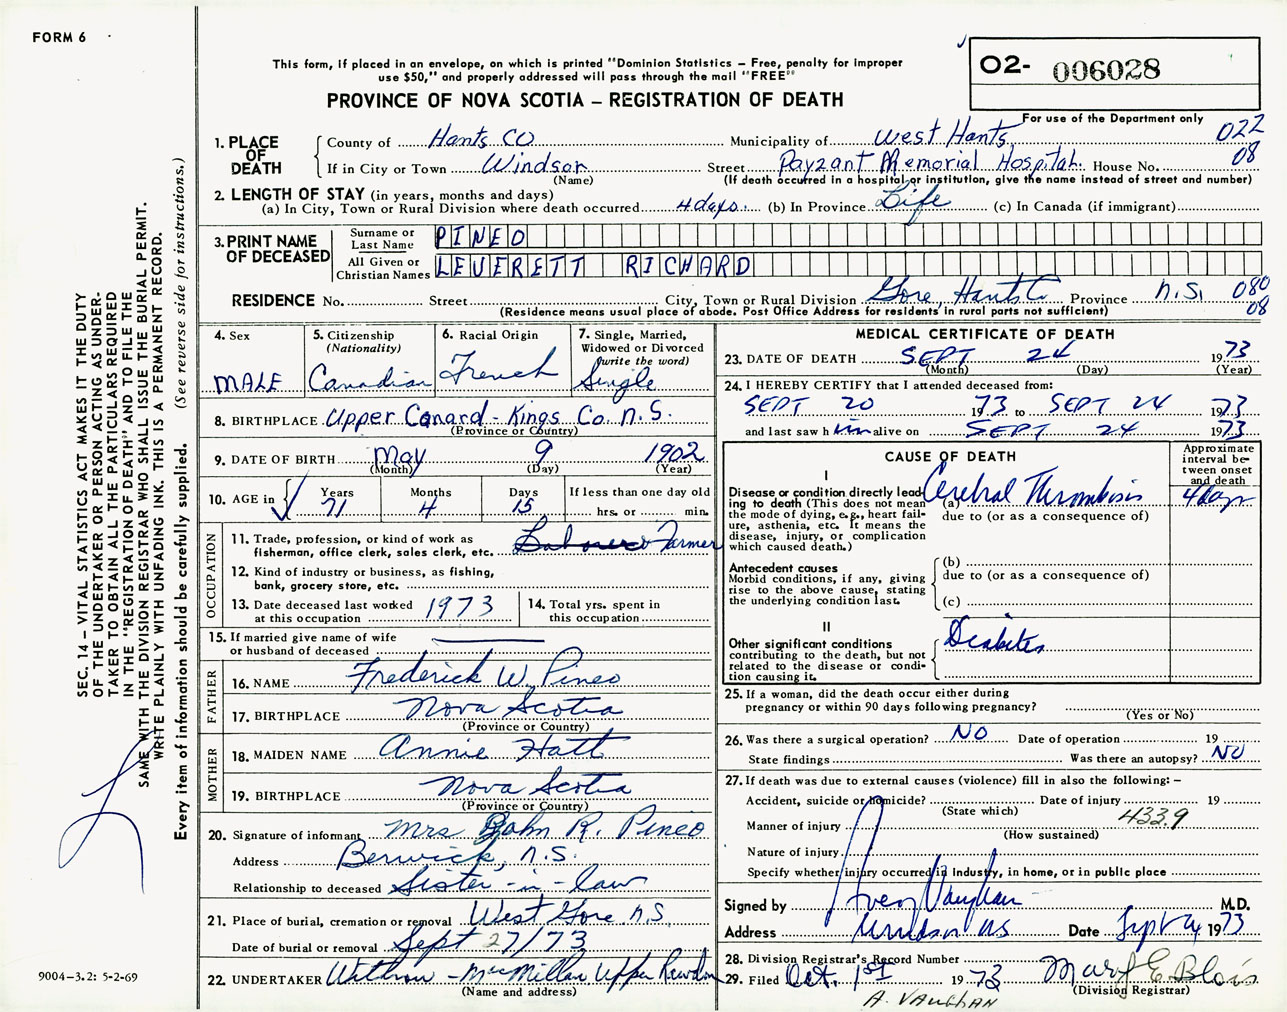 FORM 6
This form, if placed in an envelope, on which is printed "Dominion Statistics – Free, penalty for improper
use $50," and properly addressed will pass through the mail "FREE"
PROVINCE OF NOVA SCOTIA – REGISTRATION OF DEATH
O2- 006028
For use of the Department only
022
08
1. PLACE OF DEATH
County of Hants Co Municipality of West Hants
If in City or Town Windsor Street Payzant Memorial Hospital House No.
(Name) (If death occurred in a hospital or institution, give the name instead of street and number)
2. LENGTH OF STAY (in years, months and days)
(a) In City, Town or Rural Division where death occurred 4 days (b) In Province Life (c) In Canada (if immigrant)
3. PRINT NAME OF DECEASED
Surname or Last Name PINEO
All Given or Christian Names LEVERETT RICHARD
RESIDENCE No. Street City, Town or Rural Division Gore, Hants Co Province N.S. 080
08
(Residence means usual place of abode. Post Office Address for residents in rural parts not sufficient)
4. Sex MALE
5. Citizenship (Nationality) Canadian
6. Racial Origin French
7. Single, Married, Widowed or Divorced (write the word) Single
8. BIRTHPLACE Upper Canard - Kings Co. N.S.
(Province or Country)
9. DATE OF BIRTH May 9 1902
(Month) (Day) (Year)
10. AGE in Years 71 Months 4 Days 15 If less than one day old hrs. or min.
OCCUPATION
11. Trade, profession, or kind of work as
fisherman, office clerk, sales clerk, etc. Farmer
12. Kind of industry or business, as fishing,
bank, grocery store, etc.
13. Date deceased last worked at this occupation 1973
14. Total yrs. spent in this occupation
15. If married give name of wife
or husband of deceased
FATHER
16. NAME Frederick W. Pineo
17. BIRTHPLACE Nova Scotia
(Province or Country)
MOTHER
18. MAIDEN NAME Annie Hatt
19. BIRTHPLACE Nova Scotia
(Province or Country)
20. Signature of informant Mrs John R. Pineo
Address Berwick, N.S.
Relationship to deceased Sister-in-law
21. Place of burial, cremation or removal West Gore N.S
Date of burial or removal Sept 27/73
22. UNDERTAKER Withrow - MacMillan Upper Rawdon
(Name and address)
MEDICAL CERTIFICATE OF DEATH
23. DATE OF DEATH SEPT 24 1973
(Month) (Day) (Year)
24. I HEREBY CERTIFY that I attended deceased from:
SEPT 20 1973 to SEPT 24 1973
and last saw him alive on SEPT 24 1973
CAUSE OF DEATH
Approximate interval between onset and death
I
Disease or condition directly leading to death (This does not mean the mode of dying, e.g., heart failure, asthenia, etc. It means the disease, injury, or complication which caused death.)
(a) Cerebral Thrombosis 4 days
due to (or as a consequence of)
Antecedent causes
Morbid conditions, if any, giving rise to the above cause, stating the underlying condition last.
(b)
due to (or as a consequence of)
(c)
II
Other significant conditions
contributing to the death, but not related to the disease or condition causing it.
Diabites
25. If a woman, did the death occur either during
pregnancy or within 90 days following pregnancy?
(Yes or No)
26. Was there a surgical operation? NO Date of operation 19
State findings Was there an autopsy? NO
27. If death was due to external causes (violence) fill in also the following: –
Accident, suicide or homicide? Date of injury 19
(State which)
Manner of injury 433.9
(How sustained)
Nature of injury
Specify whether injury occurred in industry, in home, or in public place
Signed by Vaughan M.D.
Address Windsor NS Date Sept 1973
28. Division Registrar's Record Number
29. Filed Oct. 1st 1973 Mary E. Blois
(Division Registrar)
A. VAUGHAN
SEC. 14 – VITAL STATISTICS ACT MAKES IT THE DUTY
OF THE UNDERTAKER OR PERSON ACTING AS UNDERTAKER TO OBTAIN ALL THE PARTICULARS REQUIRED
IN THE "REGISTRATION OF DEATH" AND TO FILE THE
SAME WITH THE DIVISION REGISTRAR WHO SHALL ISSUE THE BURIAL PERMIT.
WRITE PLAINLY WITH UNFADING INK. THIS IS A PERMANENT RECORD.
Every item of information should be carefully supplied. (See reverse side for instructions.)
9004–3.2: 5-2-69